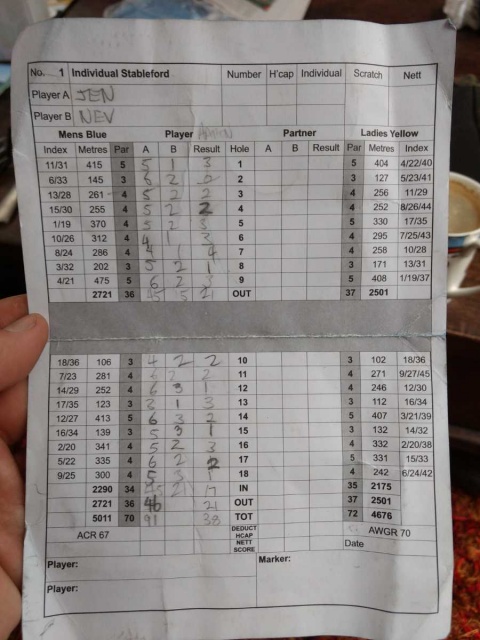 No. 1 Individual Stableford Number H'cap Individual Scratch Nett
Player A JEN
Player B NEV
Mens Blue Player Partner Ladies Yellow
Index Metres Par A B Result Hole A B Result Par Metres Index
11/31 415 5 5 1 3 1 5 404 4/22/40
6/33 145 3 6 2 0 2 3 127 5/23/41
13/28 261 4 5 2 2 3 4 256 11/29
15/30 255 4 5 2 2 4 4 252 8/26/44
1/19 370 4 5 2 3 5 5 330 17/35
10/26 312 4 4 1 3 6 4 295 7/25/43
8/24 286 4 4 7 4 258 10/28
3/32 202 3 5 2 1 8 3 171 13/31
4/21 475 5 6 2 9 5 408 1/19/37
2721 36 45 21 OUT 37 2501
18/36 106 3 4 2 2 10 3 102 18/36
7/23 281 4 6 2 2 11 4 271 9/27/45
14/29 252 4 6 3 1 12 4 246 12/30
17/35 123 3 3 1 3 13 3 112 16/34
12/27 413 5 6 3 2 14 5 407 3/21/39
16/34 139 3 5 3 1 15 3 132 14/32
2/20 341 4 5 2 3 16 4 332 2/20/38
5/22 335 4 6 2 2 17 5 331 15/33
9/25 300 4 5 3 18 4 242 6/24/42
2290 34 45 21 17 IN 35 2175
2721 36 46 21 OUT 37 2501
5011 70 91 38 TOT 72 4676
ACR 67 DEDUCT HCAP AWGR 70
NETT SCORE Date
Player: Marker:
Player: